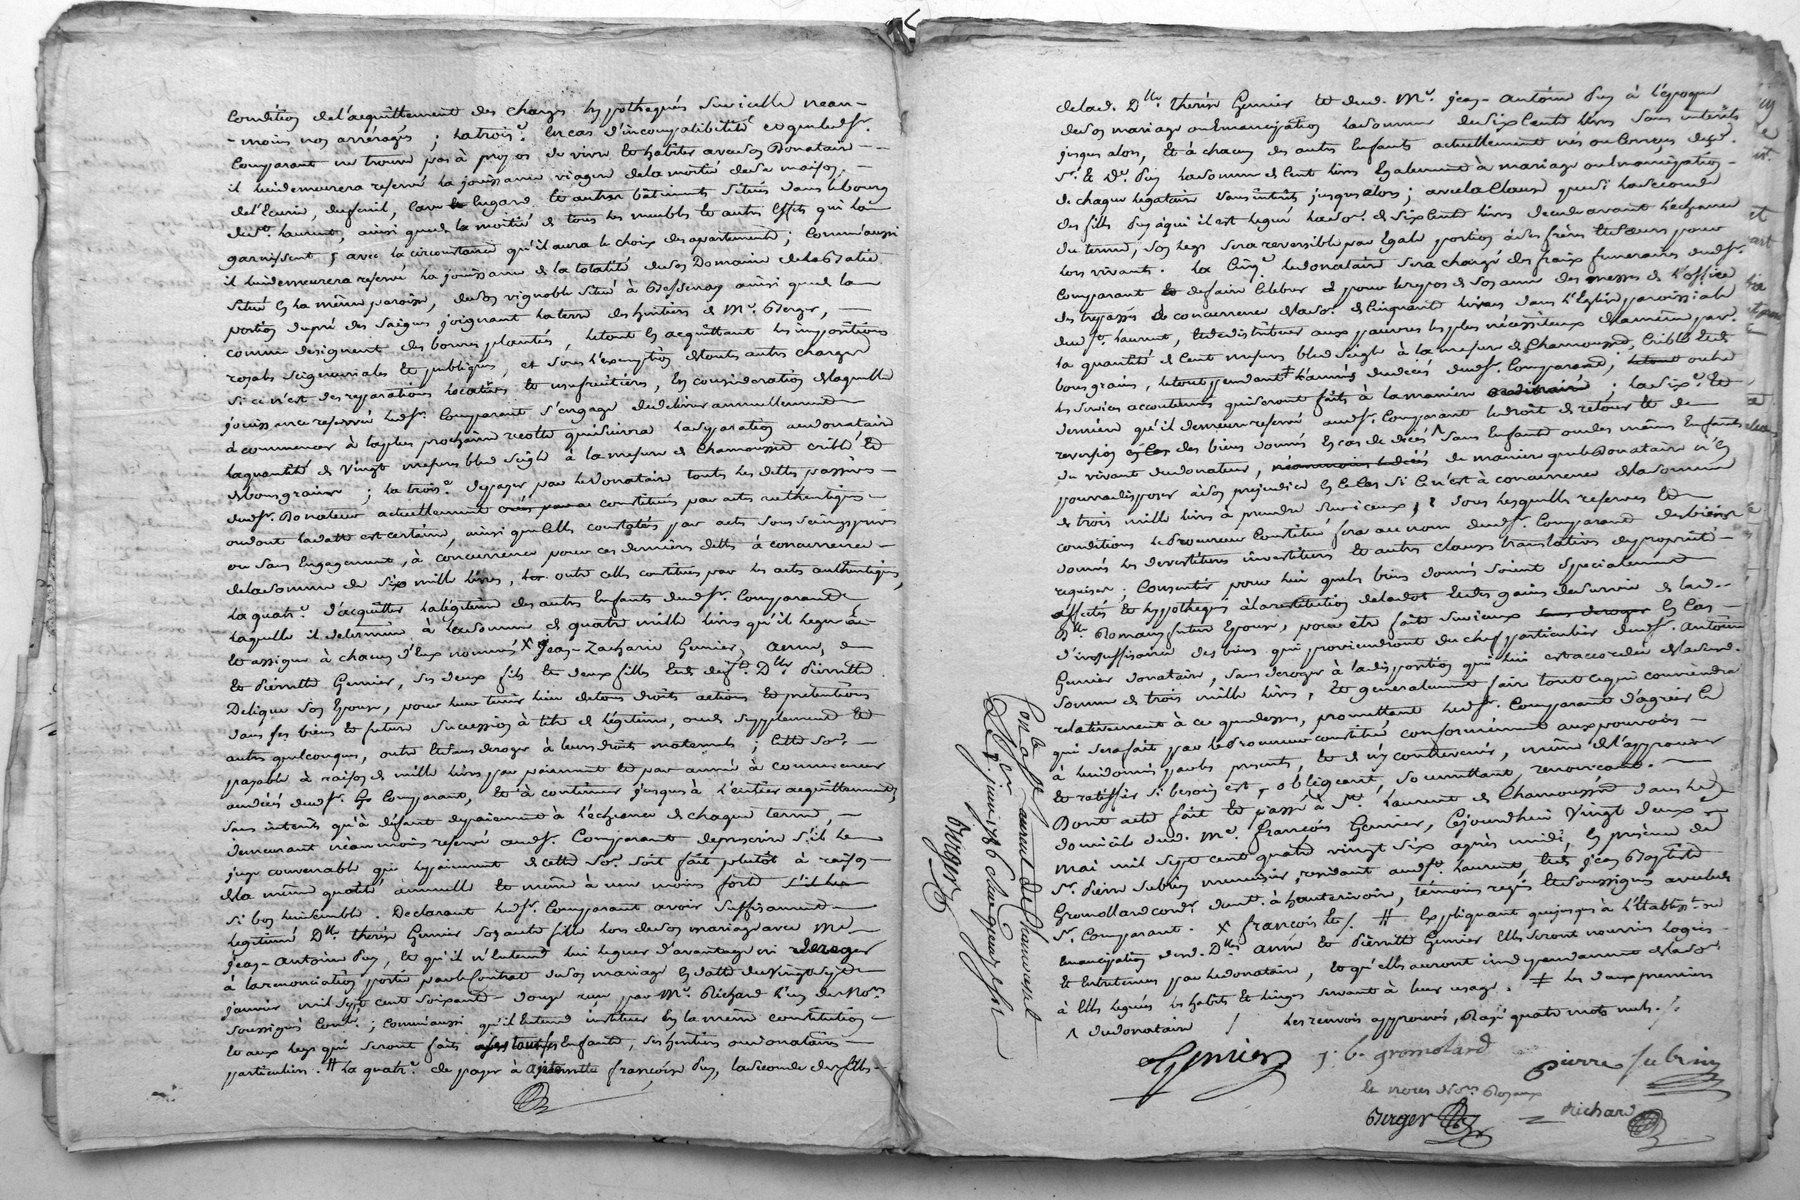 Condition de l'acquittement des charges hypothequés sur icelle néan-
-moins nos arrérages ; la trois.e En cas d'incompatibilité et que led. Sr.
Comparant ne trouve pas à propos de vivre et habiter avec son Donataire
il lui demeurera reservé la jouissance viagere de la moitié de sa maison,
de l'Ecurie, du fenil, Cave et autres bâtiments situés dans le bourg
dud. St. Laurent, ainsi que de la moitié de tous les meubles et autres Effets qui la
garnissent, avec la circonstance qu'il aura le choix des apartements ; Comme aussi
il lui demeurera reservé la jouissance de la totalité de son Domaine de la
situé En la même paroisse, de son vignoble situé à Bessenay ainsi que de la
portion du pré des Saignes joignant la terre des heritiers de Mr. Berger,
comme designent des bornes plantées, le tout En acquittant les impositions
royales seigneuriales et publiques, et sous l'exemption de touts autres charges
si ce n'est des reparations locatives et usufruitieres, En consideration de laquelle
jouissance reservée led. Sr. Comparant s'engage de delivrer annuellement
à commencer à la plus prochaine recolte qui suivra la separation au donataire
la quantité de vingt mesures bled seigle à la mesure de Chamousset criblé et
de bon graine ; la trois.e de payer par le donataire touts les dettes passives
dud. Sr. Donateur actuellement constitués par actes authentiques
ou dont la datte est certaine, ainsi que celles constatés par actes sous seings privés
ou sans Engagement, à concurrence pour ces derniers dettes à concurrence
de la somme de six mille livres, outre celles constituées par les actes authentiques,
la quatr.e d'acquitter la légitime des autres Enfants dud. Sr. Comparant
laquelle il determine à la somme de quatre mille livres qu'il legue
et assigne à chacun d'Eux nommés X Jean-Zacharie Genier, anne,
et Pierrette Genier, ses deux fils et deux filles Et de def.te Dlle Pierrette
Deligue son Epouse, pour leur tenir lieu de tous droits actions et prétentions
dans ses biens et future succession à titre de légitime, ou de supplement et
autres quelconques, outre et sans deroger à leurs droits maternels ; Cette so.e
payable à raison de mille livres par paiement et par année à commencer
au décès dud. Sr. Comparant, Et à continuer jusques à l'entier acquittement,
sans interets qu'à défaut de paiement à l'échéance de chaque terme,
demeurant néanmoins reservé aud. Sr. Comparant de prescrire s'il le
juge convenable que le paiement de cette so.e soit fait plutôt à raison
de la même quotité annuelle et même à une moins forte s'il le
si bon lui semble. Declarant led. Sr. Comparant avoir suffisament
legitimé Dlle therése Genier son autre fille lors de son mariage avec Me.
Jean-Antoine Puy, Et qu'il n'Entend lui leguer d'avantage ni deroger
à la renonciation portée par le Contrat de son mariage En datte du vingt sept
janvier mil sept cent soixante-douze reçu par Me. Richard l'un des No.res
soussignés Cont.é ; Comme aussi qu'il Entend instituer En la même constitution
Et aux legs qui seront faits Enfants, ses heritiers ou donataires
particuliers. # La quatr.e de payer à pierrette françoise Puy, la seconde des filles
de lad. Dlle therése Genier et dud. Me. Jean-Antoine Puy à l'époque
de son mariage ou Emancipation la somme de six cents livres sans interêts
jusques alors, Et à chacun des autres Enfants actuellement nés ou Conçus desd.
Sr. et De. Puy la somme de Cent livres Egalement à mariage ou Emancipation
de chaque légataire sans intérêts jusques alors ; avec la clause que si la seconde
des filles Puy à qui il est legué la so.e de six cents livres decede avant l'échéance
du terme, son legs sera reversible par Egale portion à ses frères et sœurs pour
lors vivants. La Cinq.e le donataire sera chargé des frais funeraires dud. Sr.
Comparant de faire celebrer pour le repos de son ame des messes de l'office
des trepassés de concurrence de la so.e de Cinquante livres dans l'Eglise paroissiale
dud. St. Laurent, et de distribuer aux pauvres les plus nécessiteux de la même par.
la quantité de Cent mesures bled seigle à la mesure de Chamousset, criblé et de
bons grains, le tout pendant l'année du decès dud. Sr. Comparant, outre
les services accoutumés qui seront faits à la manière ordinaire ; la six.e Et
derniere qu'il demeure reservé aud. Sr. Comparant le droit de retour et de
reversion des biens donnés En cas de décès ^ sans Enfants ou des mêmes Enfants
du vivant du donateur, néanmoins de maniere que le Donataire n'En
pourra disposer à son prejudice En ce Cas si ce n'est à concurrence de la somme
de trois mille livres à prendre sur iceux ; sous lesquelles reserves et
conditions le Procureur Constitué fera au nom dud. Sr. Comparant des biens
donnés les devestitures investitures et autres clauses translatives de propriété
requises ; Consentir pour lui que les biens donnés soient specialement
affectés et hypothequés à la restitution de la dot et des gains de survie de lad.
Dlle Romans future Epouse, pour être faite sur iceux sans deroger En Cas
d'insuffisance des biens qui proviendront du chef particulier dud. Sr. Antoine
Genier donataire, sans deroger à la disposition qui lui est accordée de lad.
somme de trois mille livres, Et generalement faire tout ce qui conviendra
relativement à ce que dessus, promettant led. Sr. Comparant d'agréer Ce
qui sera fait par le Procureur constitué conformément aux pouvoirs
à lui donnés par les presents, Et de n'y contrevenir, même de l'approuver
Et ratifier si besoin est, obligeant, soumettant, renonceant.
Dont acte fait et passé à St. Laurent de Chamousset dans le
domicile dud. Me. François Genier, Cejourdhui vingt deux
mai mil sept cent quatre vingt six après midi, En présence de
Sr. Pierre Subrin menuisier, residant aud. St. Laurent, Et de Jean Baptiste
Gromollard cord.r dem.t à hauterivoire, témoins requis et soussignés avec led.
Sr. Comparant. X françois les /. # Expliquant que jusques à l'Etabliss.t ou
Emancipation desd. Dlles anne et Pierrette Genier Elles seront nourries logées
Et Entretenues par le donataire, et qu'elles auront independament de la so.e
à Elles leguées les habits Et linges servant à leur usage. # les deux premiers
^ du donataire / Les renvois approuvés, Rayé quatre mots nuls. /.
Genier J. b. gromolard pierre subrin
le nous No.res Royaux
Berger Richard
Con.lé à St. Laurent de Chamousset
le 2 juin 1786
Berger